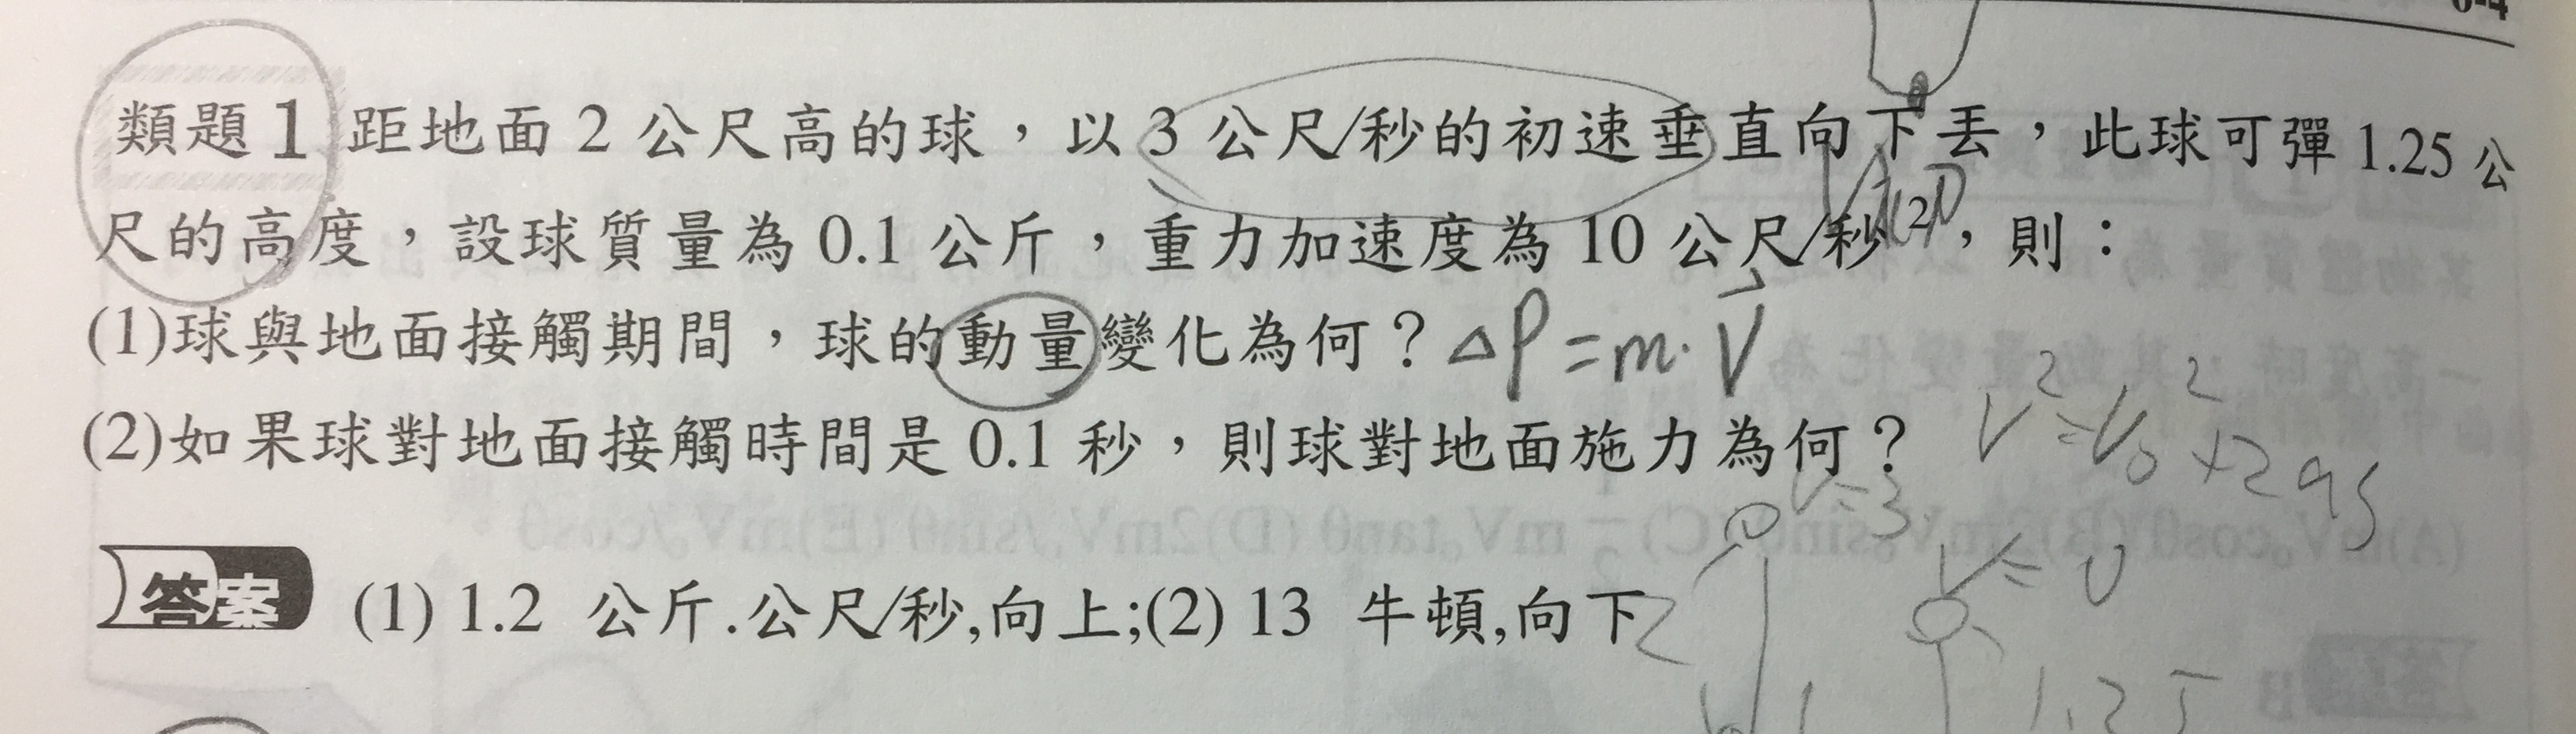 6-4
類題1 距地面 2 公尺高的球，以 3 公尺/秒的初速垂直向下丟，此球可彈 1.25 公
尺的高度，設球質量為 0.1 公斤，重力加速度為 10 公尺/秒²，則：
(1)球與地面接觸期間，球的動量變化為何？ΔP=m·V⃗
(2)如果球對地面接觸時間是 0.1 秒，則球對地面施力為何？
V²=V₀²+2as
V=3
V=0
答案 (1) 1.2 公斤.公尺/秒,向上;(2) 13 牛頓,向下
2
1.25